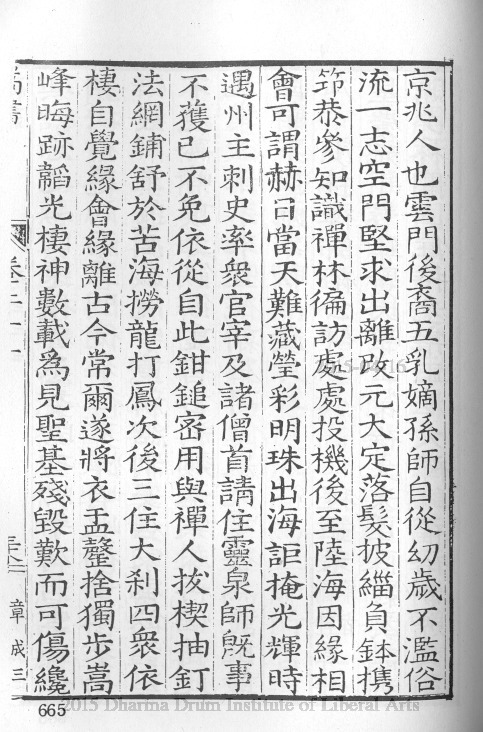 京兆人也雲門後裔五乳嫡孫師自從幼歲不濫俗
流一志空門堅求出離改元大定落髮披緇負鉢携
笻恭參知識禪林徧訪處處投機後至陸海因緣相
會可謂赫日當天難藏瑩彩明珠出海詎掩光輝時
遇州主刺史率衆官宰及諸僧首請住靈泉師旣事
不獲已不免依從自此鉗鎚密用與禪人拔楔抽釘
法網鋪舒於苦海撈龍打鳳次後三住大刹四衆依
棲自覺緣會緣離古今常爾遂將衣盂罄捨獨步嵩
峰晦跡韜光棲神數載為見聖基殘毀歎而可傷纔
嵩書
卷二十一
章成三
665
2015 Dharma Drum Institute of Liberal Arts